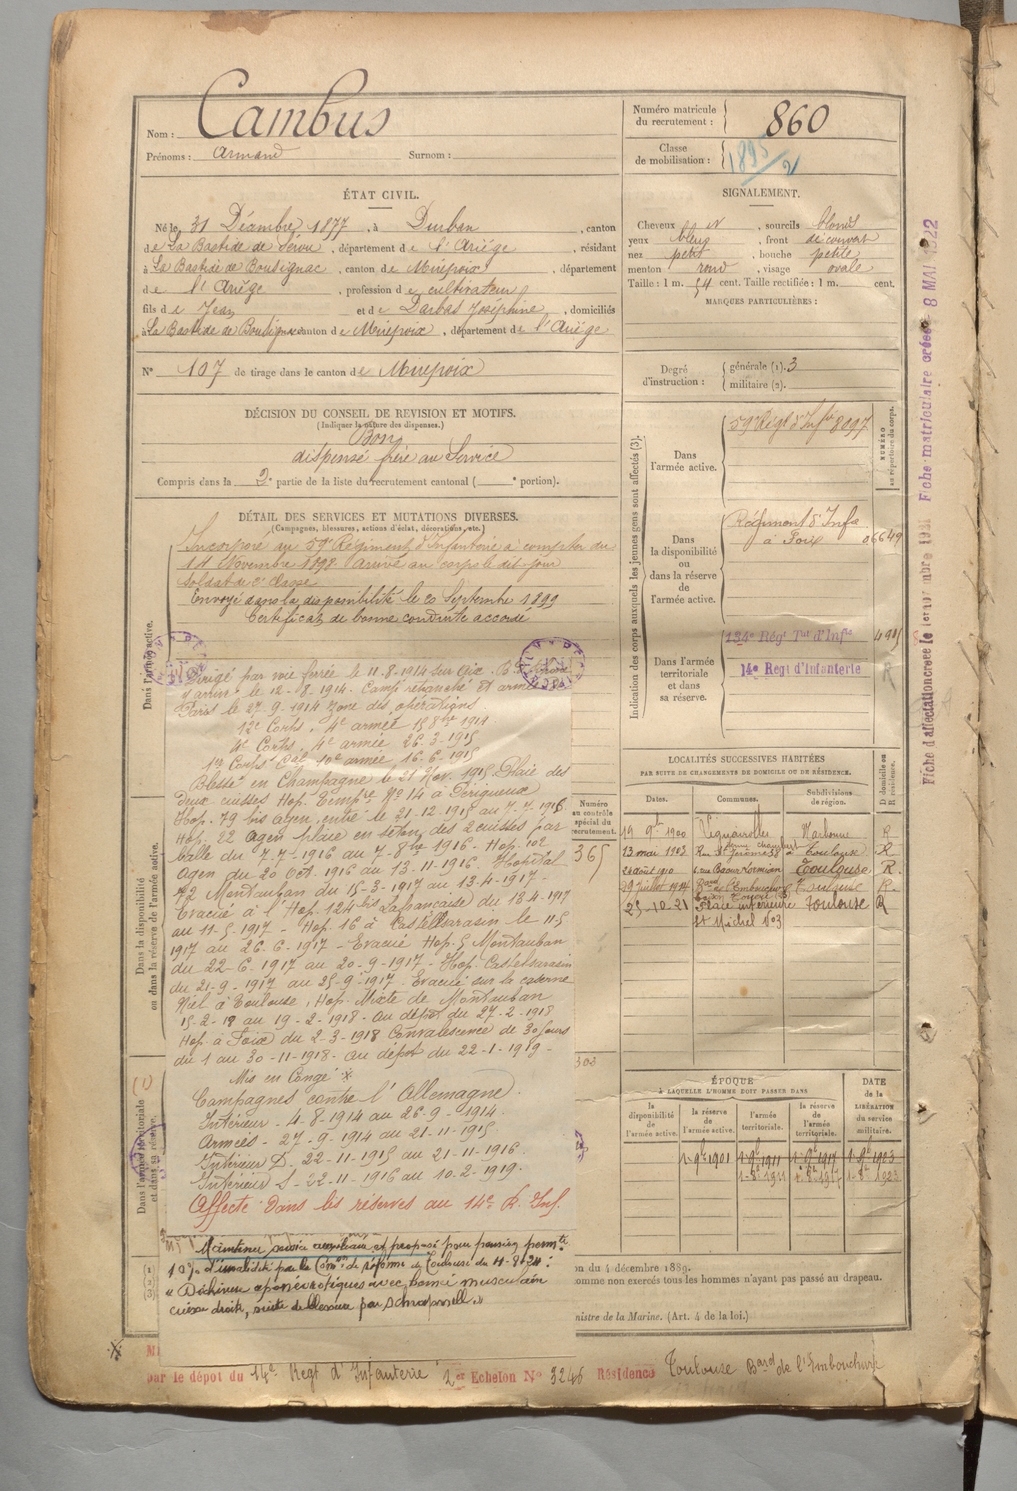 Nom : Cambus
Prénoms : Armand Surnom :
Numéro matricule du recrutement : 860
Classe de mobilisation : 1895/2
ÉTAT CIVIL.
Né le 31 Décembre 1877, à Durban, canton
de La Bastide de Sérou, département de l'Ariége, résidant
à La Bastide de Bousignac, canton de Mirepoix, département
de l'Ariège, profession de cultivateur
fils de Jean et de Darbas Joséphine, domiciliés
à La Bastide de Bousignac canton de Mirepoix, département de l'Ariège
N° 107 de tirage dans le canton de Mirepoix
SIGNALEMENT.
Cheveux et sourcils blonds
yeux bleus, front découvert
nez petit, bouche petite
menton rond, visage ovale
Taille : 1 m. 54 cent. Taille rectifiée : 1 m. cent.
MARQUES PARTICULIÈRES :
Degré d'instruction : générale (1). 3
militaire (2).
DÉCISION DU CONSEIL DE REVISION ET MOTIFS.
(Indiquer la nature des dispenses.)
Bon
dispensé frère au Service
Compris dans la 2e partie de la liste du recrutement cantonal ( e portion).
DÉTAIL DES SERVICES ET MUTATIONS DIVERSES.
(Campagnes, blessures, actions d'éclat, décorations, etc.)
Incorporé au 59e Régiment d'Infanterie à compter du
14 Novembre 1898 arrivé au corps le dit jour
soldat de 2e classe
Envoyé dans la disponibilité le 20 Septembre 1899
Certificat de bonne conduite accordé
Dirigé par voie ferrée le 11.8.1914 sur
y arrivé le 12-8-1914. Camp retranché et armée
Paris le 27.9.1914 zone des opérations
12e Corps. 4e armée 15 8bre 1914
4e Corps. 4e armée 26-3-1915
10e armée, 16.6.1915
Blessé en Champagne le 21 Nov. 1915 Plaie des
deux cuisses Hop. Tempre No 14 à Périgueux
Hop. 79 bis Agen, entré le 21.12.1915 au 7.7.1916
Hop. 22 Agen plaie en séton des 2 cuisses par
balle du 7-7-1916 au 7-8bre 1916 - Hop. 102
Agen du 20 Oct. 1916 au 13-11-1916. Hopital
72 Montauban du 15-3-1917 au 13-4-1917.
Evacué à l'Hop. 124 bis Lafrancaise du 13-4-1917
au 11-5-1917 - Hop. 16 à Castelsarasin le 11-5
1917 au 26-6-1917 - Evacué Hop. 5 Montauban
du 22-6-1917 au 20-9-1917 - Hop. Castelsarasin
du 21-9-1917 au 25-9-1917 - Evacué sur la caserne
Niel à Toulouse. Hop. Mixte de Montauban
15-2-18 au 19-2-1918 - au dépôt du 27-2-1918
Hop. à Foix du 2-3-1918 Convalescence de 30 jours
du 1 au 30-11-1918 - au dépôt du 22-1-1919 -
Mis en Congé *
Campagnes contre l'Allemagne.
Intérieur - 4-8-1914 au 26-9-1914.
Armées - 27-9-1914 au 21-11-1915
Intérieur D - 22-11-1915 au 21-11-1916
Intérieur S - 22-11-1916 au 10-2-1919.
Affecté dans les réserves au 14e R. Inf.
Maintenu service auxiliaire et proposé pour pension permte
10% d'invalidité par la Comon de réforme de Toulouse du 4-8-24 :
« Déchirure aponévrotiques avec hernie musculaire
cuisse droite, suite de blessure par schrapnell. »
Dans l'armée active.
Dans la disponibilité
ou dans la réserve de l'armée active.
Dans l'armée territoriale
et dans sa réserve.
(1)
Indication des corps auxquels les jeunes gens sont affectés (3).
NUMÉRO au répertoire du corps.
Dans l'armée active. 59e Régt d'Infie 8097
Dans la disponibilité ou dans la réserve de l'armée active. Régiment d'Infie à Foix 06649
Dans l'armée territoriale et dans sa réserve. 134e Régt Tal d'Infie
14e Regt d'Infanterie R
Fiche matriculaire créée 8 MAI 1922
Numéro au contrôle spécial du recrutement.
365
303
LOCALITÉS SUCCESSIVES HABITÉES
PAR SUITE DE CHANGEMENTS DE DOMICILE OU DE RÉSIDENCE.
Dates. Communes. Subdivisions de région. D domicile ou R résidence.
19 9b 1900 Narbonne R
13 mai 1903 Rue St Jérôme 38 à Toulouse R
24 août 1910 6 rue Baour Lormian Toulouse R.
29 juillet 1914 Bard de l'Embouchure Toulouse R.
25-10-21 Place intérieure St Michel No 3 Toulouse R
ÉPOQUE
À LAQUELLE L'HOMME DOIT PASSER DANS
la disponibilité de l'armée active. la réserve de l'armée active. l'armée territoriale. la réserve de l'armée territoriale. DATE de la LIBÉRATION du service militaire.
1-9b 1901 1-9b 1911 1-9b 1917 1-9b 1923
1-8b 1911 1-8b 1917 1-8b 1923
on du 4 décembre 1889.
omme non exercés tous les hommes n'ayant pas passé au drapeau.
nistre de la Marine. (Art. 4 de la loi.)
par le dépôt du 14e Regt d'Infanterie 2e Echelon No 3246 Résidence Toulouse Bard de l'Embouchure